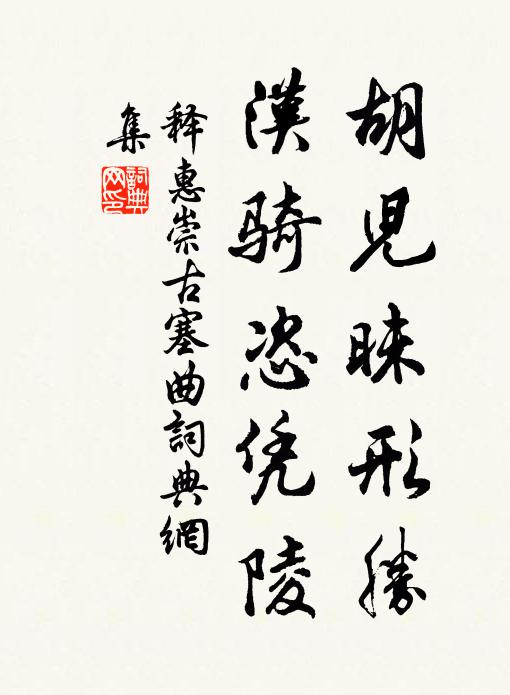 胡兒昧形勝
漢騎恣凭陵
释惠崇古塞曲詞典網
集
詞典
网印